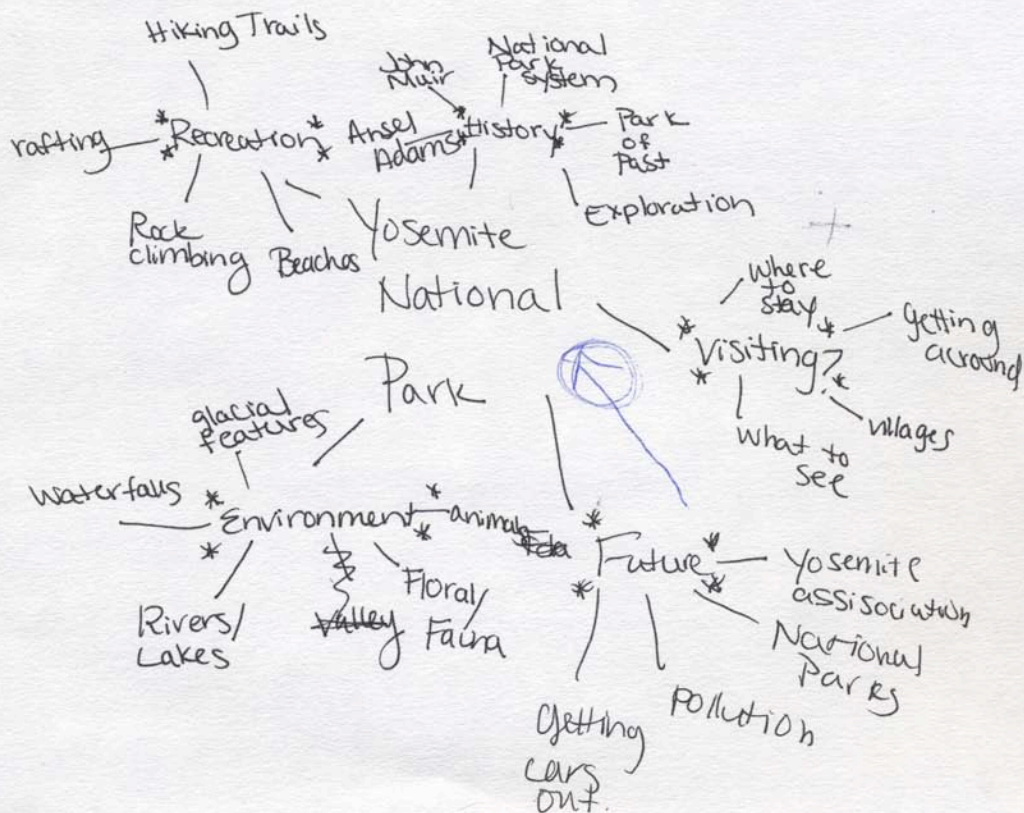 Hiking Trails
rafting
Recreation
Rock
climbing
Beaches
John
Muir
National
Park
System
Ansel
Adams
History
Park
of
Past
Exploration
Yosemite
National
Park
Where
to
stay
Visiting?
getting
around
villages
What to
see
glacial
features
Waterfalls
Environment
animals
Rivers/
Lakes
Valley
Floral/
Fauna
Future
Yosemite
assisociation
National
Parks
Pollution
Getting
cars
out.